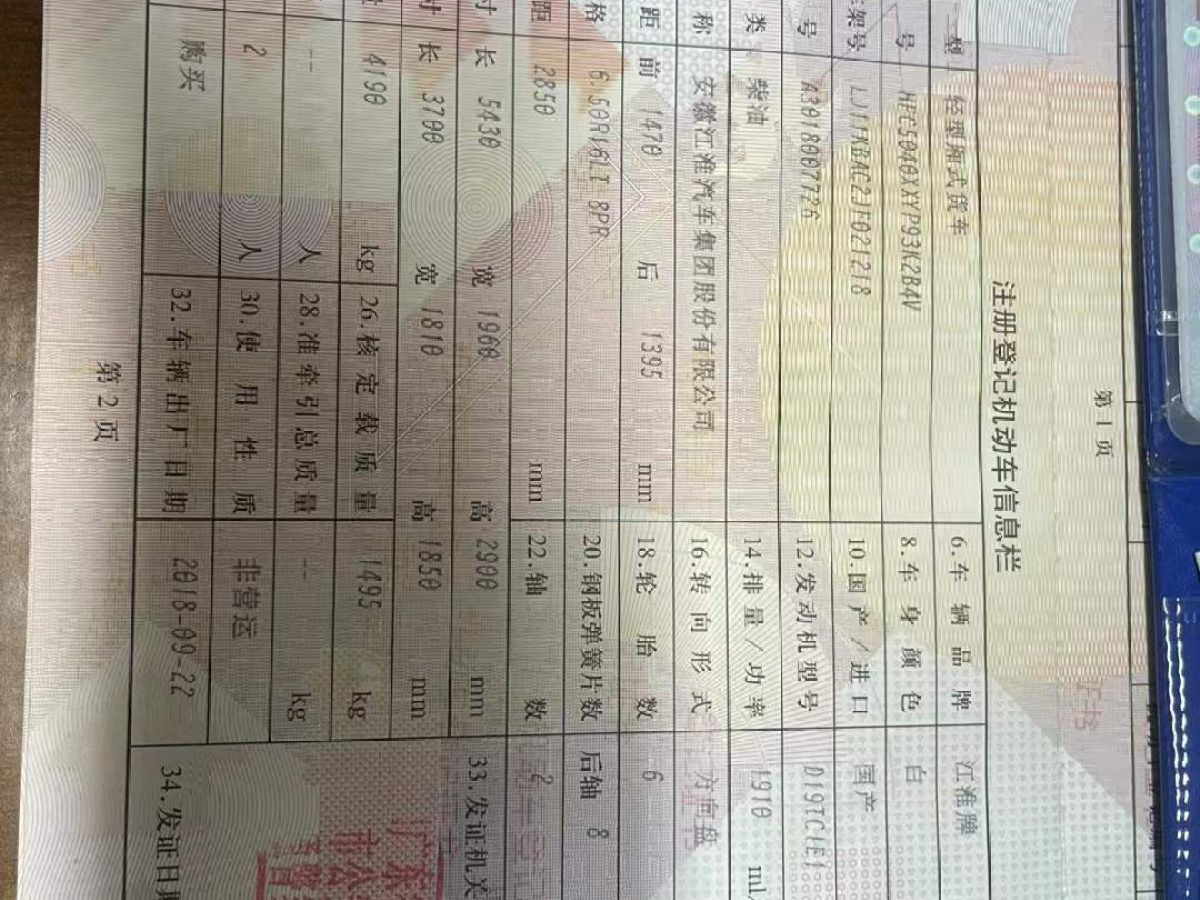 第1页
注册登记机动车信息栏
型 轻型厢式货车 6.车辆品牌 江淮牌
号 HFC5040XXYP93K2B4V 8.车身颜色 白
架号 LJ11KBAC2JF021218 10.国产/进口 国产
号 A3018007726 12.发动机型号 D19TCIE1
类 柴油 14.排量/功率 1910 ml
称 安徽江淮汽车集团股份有限公司 16.转向形式 方向盘
距 前 1470 后 1395 mm 18.轮胎数 6
格 6.50R16LT 8PR 20.钢板弹簧片数 后轴 8
距 2850 mm 22.轴数 2
寸 长 5430 宽 1960 高 2900 mm 33.发证机关
寸 长 3700 宽 1810 高 1850 mm
4190 kg 26.核定载质量 1495 kg
-- 人 28.准牵引总质量 -- kg
2 人 30.使用性质 非营运
购买 32.车辆出厂日期 2018-09-22 34.发证日
第2页
广东
市公